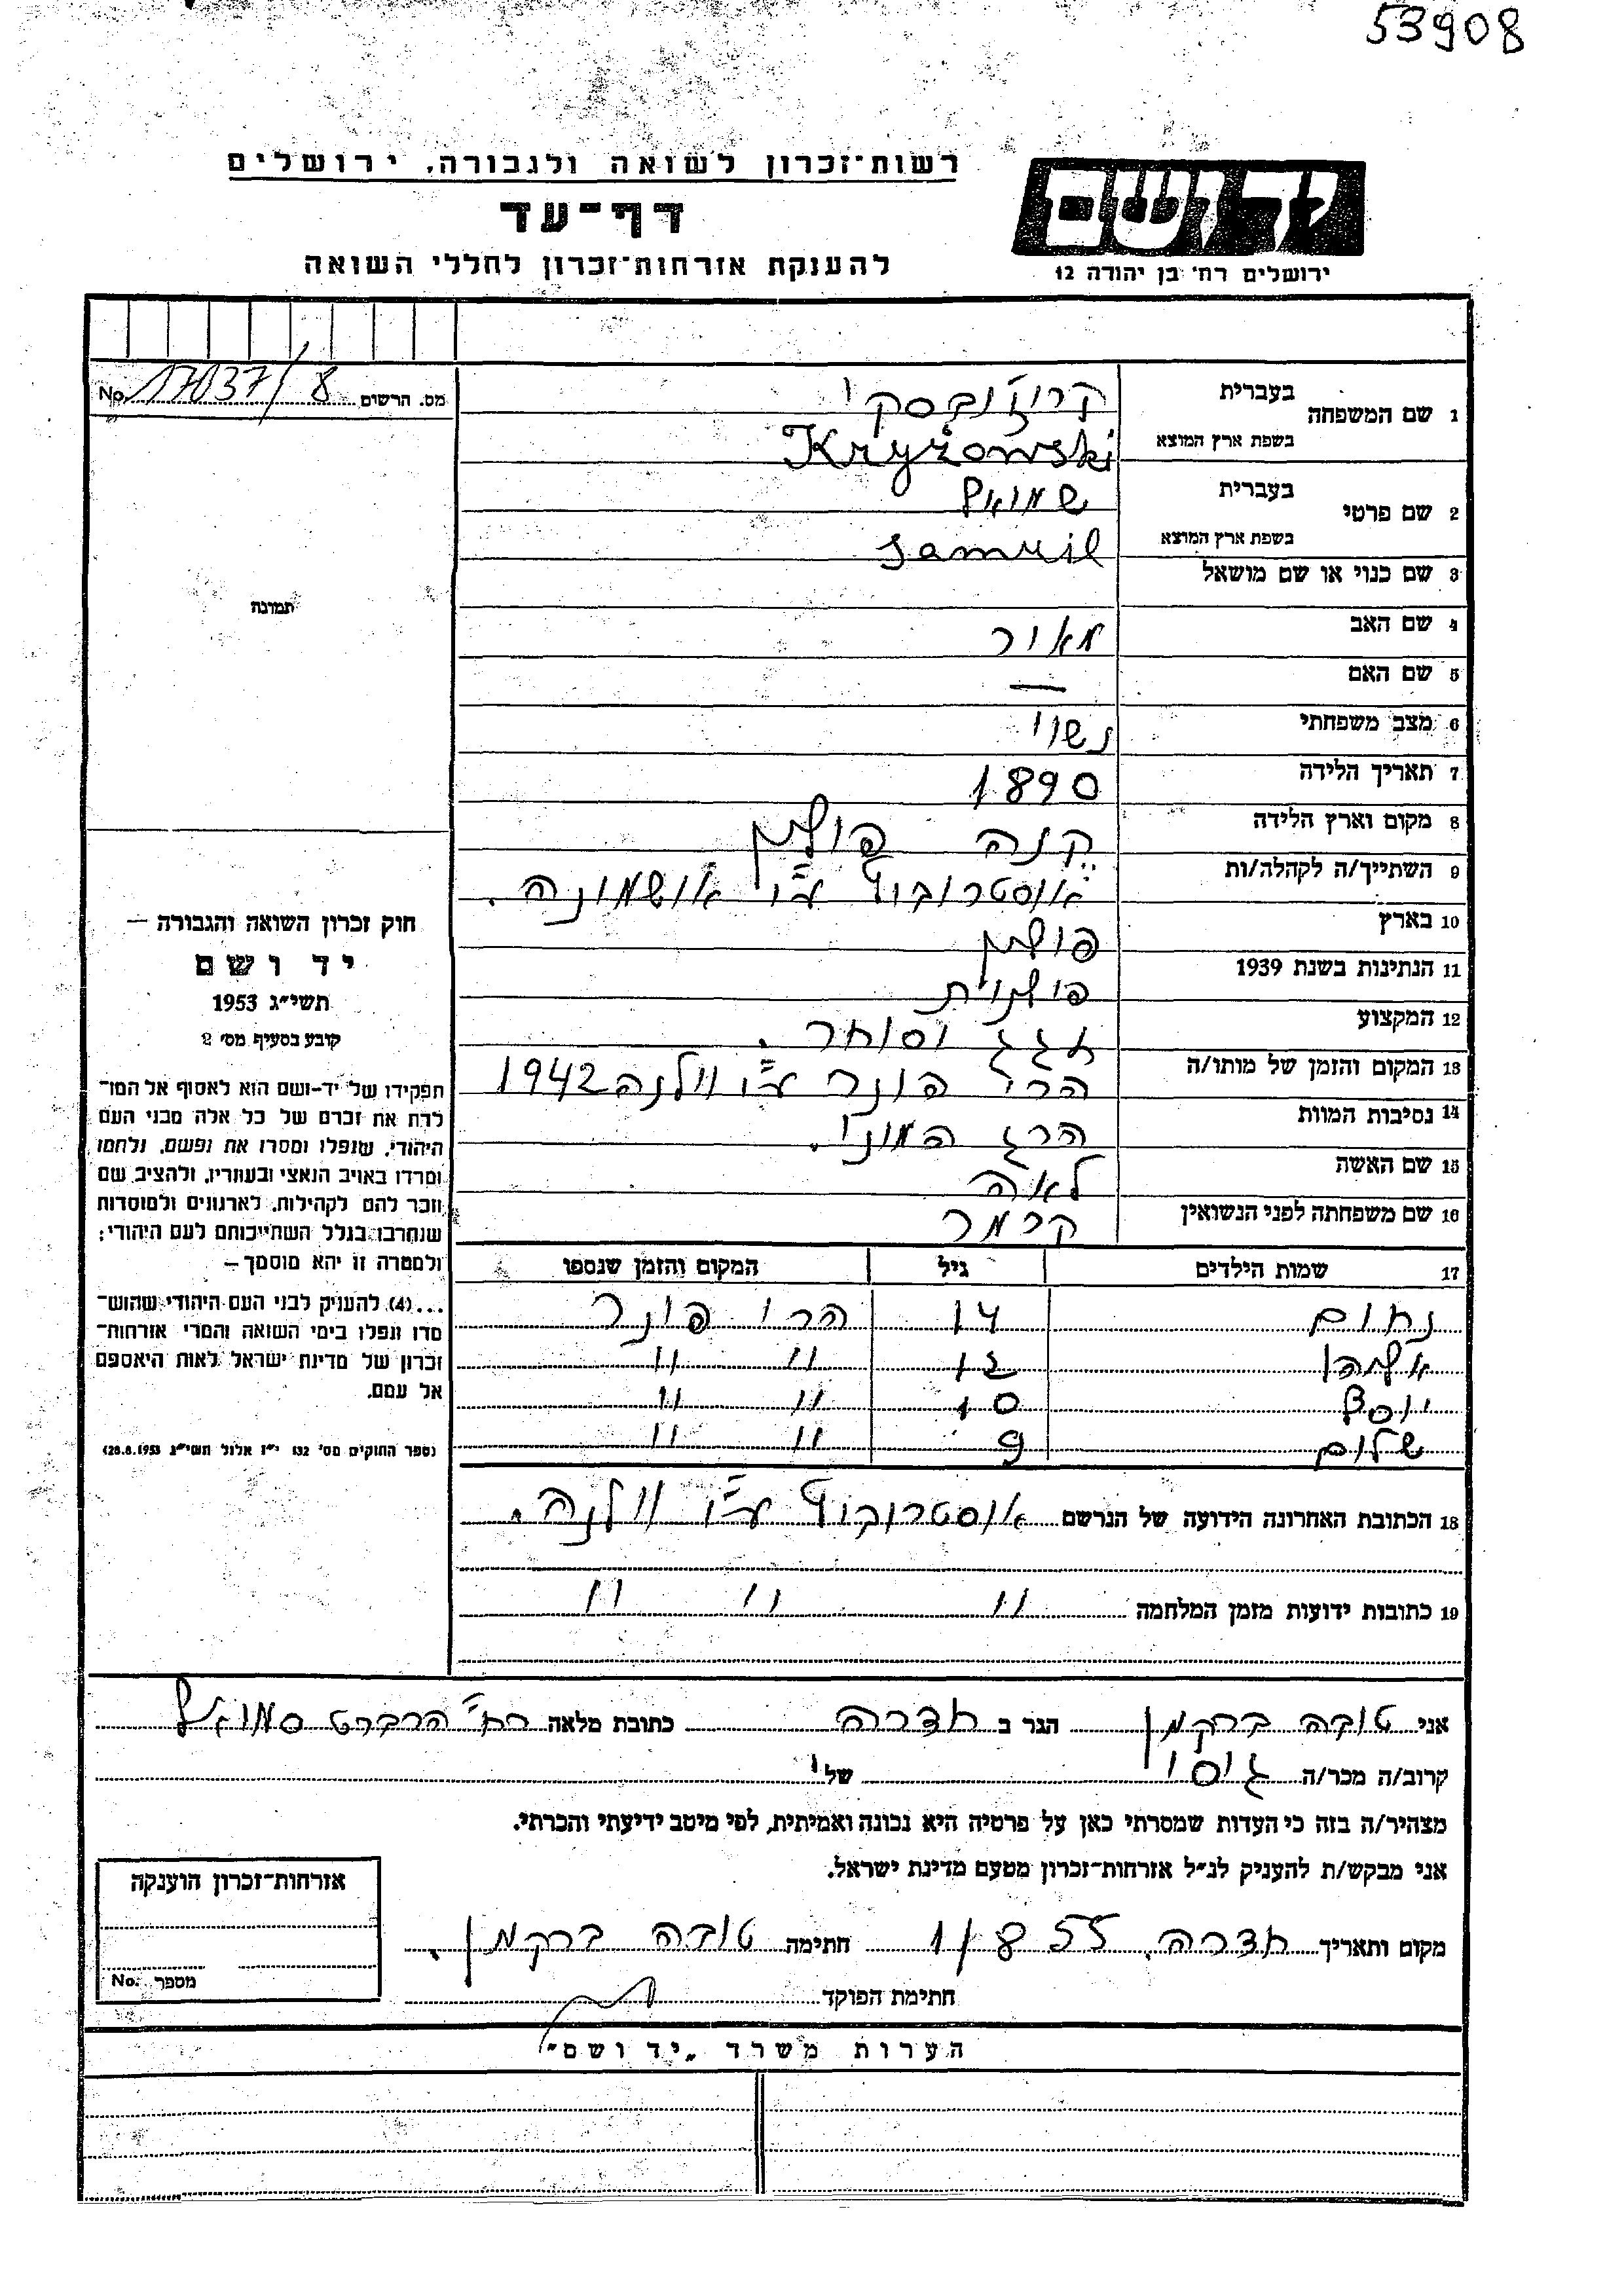 53908
רשות־זכרון לשואה ולגבורה, ירושלים
דף־עד
להענקת אזרחות־זכרון לחללי השואה
יד ושם
ירושלים רח' בן יהודה 12
מס. הרשום 17037/8 No.
תמונה
חוק זכרון השואה והגבורה —
יד ושם
תשי״ג 1953
קובע בסעיף מס' 2
תפקידו של יד-ושם הוא לאסוף אל המו־
לדת את זכרם של כל אלה מבני העם
היהודי, שנפלו ומסרו את נפשם, נלחמו
ומרדו באויב הנאצי ובעוזריו, ולהציב שם
וזכר להם לקהילות, לארגונים ולמוסדות
שנחרבו בגלל השתייכותם לעם היהודי;
ולמטרה זו יהא מוסמך —
...(4) להעניק לבני העם היהודי שהוש־
מדו ונפלו בימי השואה והמרי אזרחות־
זכרון של מדינת ישראל לאות היאספם
אל עמם.
(ספר החוקים מס' 132 י״ז אלול תשי״ג 28.8.1953)
1 שם המשפחה בעברית קריז'ובסקי
בשפת ארץ המוצא Kryżowski
2 שם פרטי בעברית שמואל
בשפת ארץ המוצא Samuil
3 שם כנוי או שם מושאל
4 שם האב מאיר
5 שם האם —
6 מצב משפחתי נשוי
7 תאריך הלידה 1890
8 מקום וארץ הלידה קנה פולין
9 השתייך/ה לקהלה/ות אוסטרוביץ ע״י אושמונה.
10 בארץ פולין
11 הנתינות בשנת 1939 פולנית
12 המקצוע וסוחר.
13 המקום והזמן של מותו/ה הרי פונר ע״י וילנה 1942
14 נסיבות המוות הרג המוני.
15 שם האשה לאה
16 שם משפחתה לפני הנשואין קרמר
17 שמות הילדים גיל המקום והזמן שנספו
נחום 14 הרי פונר
אליהו 12 " "
יוסף 10 " "
שלום 9 " "
18 הכתובת האחרונה הידועה של הנרשם אוסטרוביץ ע״י וילנה.
19 כתובות ידועות מזמן המלחמה " " "
אני טובה ברקמן הגר ב חדרה כתובת מלאה רח' הרברט סמואל
קרוב/ה מכר/ה גיסי של
מצהיר/ה בזה כי העדות שמסרתי כאן על פרטיה היא נכונה ואמיתית, לפי מיטב ידיעתי והכרתי.
אני מבקש/ת להעניק לנ״ל אזרחות־זכרון מטעם מדינת ישראל.
מקום ותאריך חדרה, 1/8 55 חתימה טובה ברקמן.
חתימת הפוקד
אזרחות־זכרון הוענקה
מספר No.
הערות משרד „יד ושם"